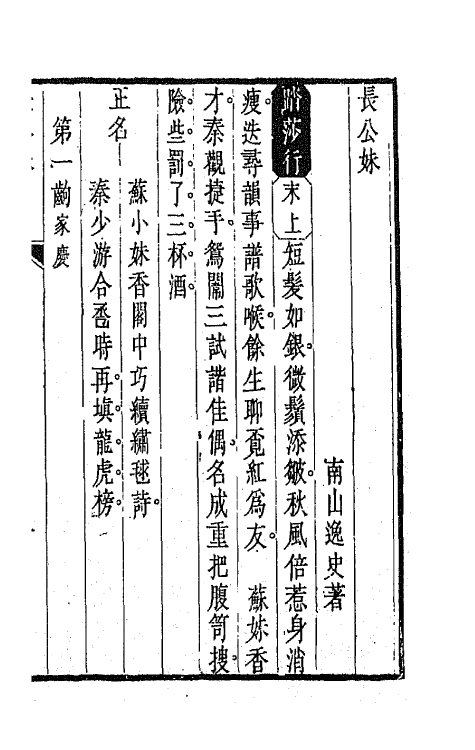 長公妹
南山逸史著
踏莎行 末上 短髮如銀。微鬚添皺。秋風倍惹身消
瘦。迭尋韻事譜歌喉。餘生聊覔紅爲友。 蘇妹香
才。秦觀捷手。鴛闈三試諧佳偶。名成重把腹笥搜。
險些罰了三杯酒。
正名
蘇小妹香閣中巧續繡毬詩。
秦少游合巹時再塡龍虎榜。
第一齣家慶